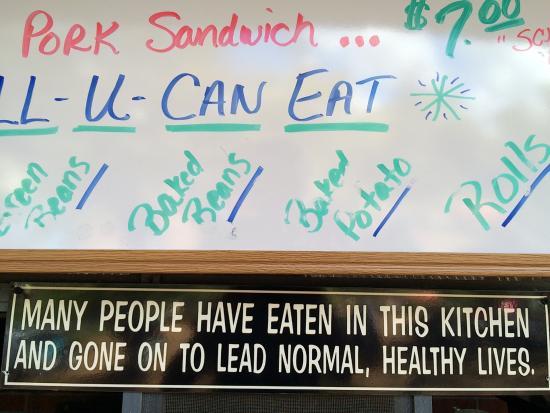 Pork Sandwich ... $7.00
LL-U-CAN EAT
Green Beans / Baked Beans / Baked Potato / Rolls /
MANY PEOPLE HAVE EATEN IN THIS KITCHEN
AND GONE ON TO LEAD NORMAL, HEALTHY LIVES.